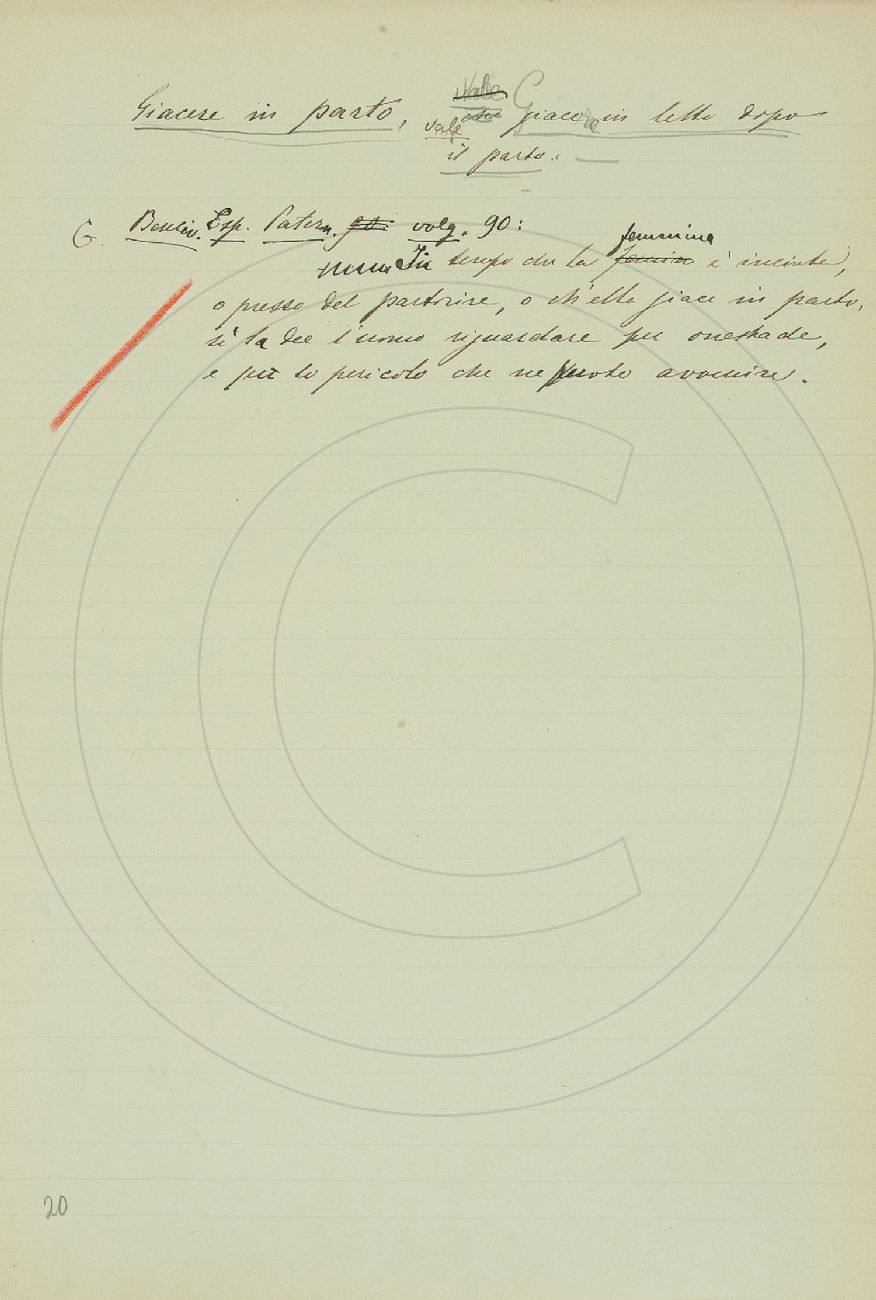 Giacere in parto, vale Giacere in letto dopo
il parto. —
G. Benciv. Esp. Patern. volg. 90:
In tempo che la femmina è incinta,
o presso del partorire, o ch'ella giace in parto,
sì la dee l'uomo riguardare per onestade,
e per lo pericolo che ne puote avvenire.
20